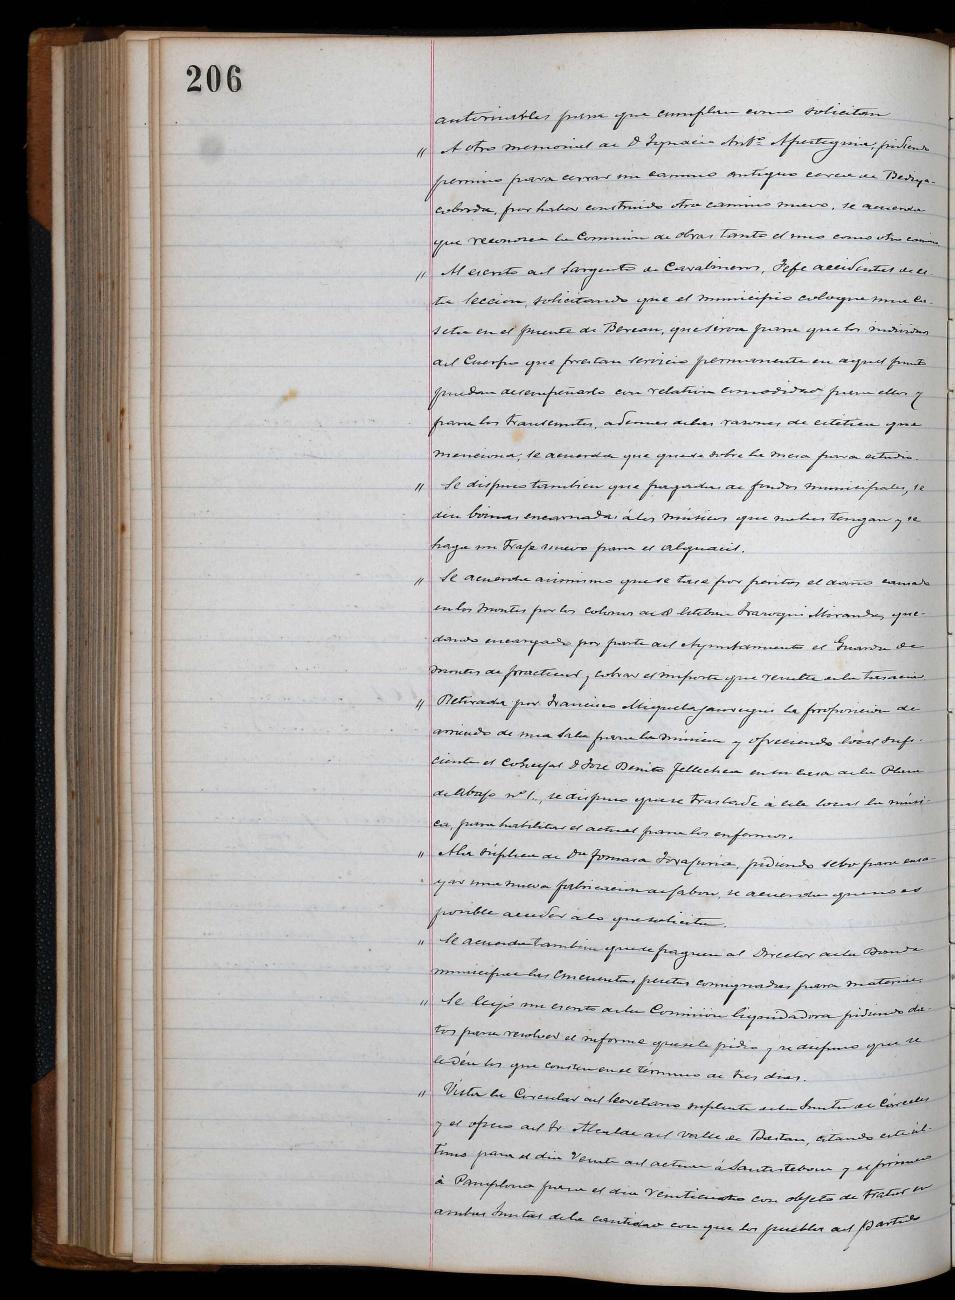 206
autorizarles para que cumplan como solicitan
" A otro memorial de D Ignacio Antº Apesteguia, pidiendo
permiso para cerrar un camino antiguo cerca de
por haber construido otro camino nuevo, se acuerda
que reconozca la Comision de obras tanto el uno como otro camino
" Al escrito del Sargento de Carabineros, Jefe accidental de es-
ta Seccion, solicitando que el municipio coloque una ca-
seta en el puente de que sirva para que los individuos
del Cuerpo que prestan servicio permanente en aquel punto
puedan desempeñarlo con relativa comodidad para ellos y
para los transeuntes, ademas de las razones de estética que
menciona, se acuerda que quede sobre la mesa para estudio.
" Se dispuso tambien que pagadas de fondos municipales, se
den boinas encarnadas á los músicos que no las tengan y se
haga un traje nuevo para el alguacil.
" Se acuerda asimismo que se tase por peritos el daño causado
en los montes por los colonos de D Esteban Miranda, que-
dando encargado por parte del Ayuntamiento el Guarda de
montes de practicar y cobrar el importe que resulte de la tasacion
" Retirada por Francisco Miquelajauregui la proposicion de
arriendo de una Sala para la música y ofreciendo local sufi-
ciente el Concejal D José Benito Tellechea en su casa de la Plaza
de abajo nº 1., se dispuso que se traslade á este local la músi-
ca, para habilitar el actual para los enfermos.
" A la súplica de Dª Tomasa pidiendo sebo para ensa-
yar una nueva fabricacion de jabon, se acuerda que no es
posible acceder a lo que solicita.
" Se acuerda tambien que se paguen al Director de la Banda
municipal las cincuenta pesetas consignadas para material
" Se leyó un escrito de la Comision liquidadora pidiendo da-
tos para resolver el informe que se le pide y se dispuso que se
le dén los que consten en el término de tres dias.
" Vista la Circular del Secretario suplente de la Junta de Cárceles
y el oficio del Sr Alcalde del Valle de Baztan, citando este úl-
timo para el dia Veinte del actual á Santesteban y el primero
á Pamplona para el dia veinticuatro con objeto de tratar en
ambas Juntas de la cantidad con que los pueblos del Partido